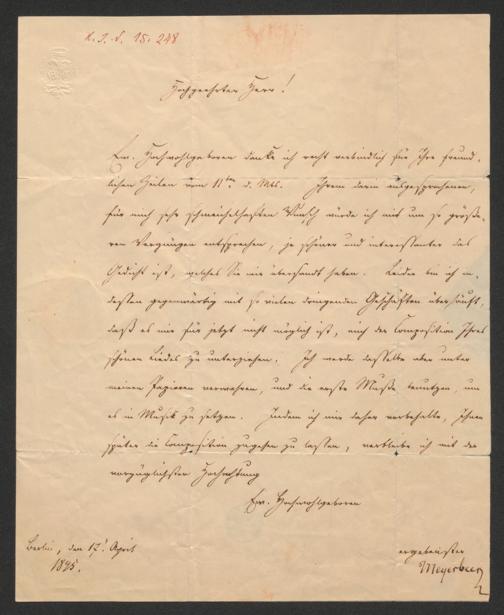 K. J. d. 15. 248
Hochgeehrter Herr!
Ew. Hochwohlgeboren danke ich recht verbindlich für Ihre freund-
lichen Zeilen vom 11ten d. Mts. Ihrem darin ausgesprochenen,
für mich sehr schmeichelhaften Wunsch würde ich mit um so größe-
ren Vergnügen entsprechen, je schöner und interessanter das
Gedicht ist, welches Sie mir übersandt haben. Leider bin ich in-
dessen gegenwärtig mit so vielen dringenden Geschäften überhäuft,
daß es mir für jetzt nicht möglich ist, mich der Composition Ihres
schönen Liedes zu unterziehen. Ich werde dasselbe aber unter
meinen Papieren verwahren, und die erste Muße benutzen, um
es in Musik zu setzen. Indem ich mir daher vorbehalte, Ihnen
später die Composition zugehen zu lassen, verbleibe ich mit der
vorzüglichsten Hochachtung
Ew. Hochwohlgeboren
Berlin, den 17. April
1845.
ergebenster
Meyerbeer